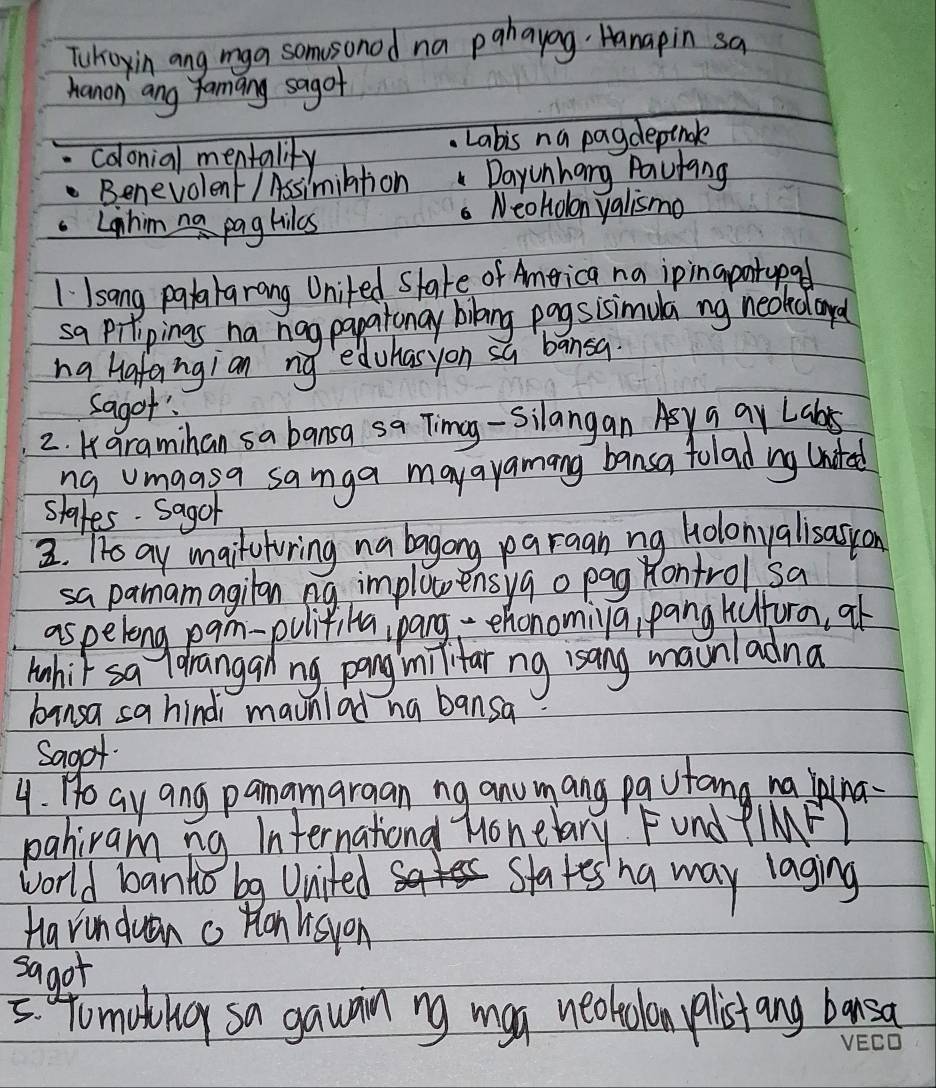 Tukoyin ang mga somusonod na pahayag. Hanapin sa
hanon ang tamang sagot
• Colonial mentality
• Labis na pagdepende
• Benevolent / Assimilation
• Dayunhang Pautang
• Lahim na pag kilos
• Neokolonyalismo
1. Isang patakarang United State of America na ipinapatupad
sa Pilipinas na nagpapatunay bilang pagsisimula ng neokolonyal
na katangian ng edukasyon sa bansa.
sagot:
2. Karamihan sa bansa sa Timog-silangan Asya ay Labis
na umaasa samga mayayamang bansa tulad ng United
states. Sagot
3. Ito ay maituturing na bagong paraan ng kolonyalisasyon
sa pamamagitan ng implowensya o pag kontrol sa
aspeleng pam-pulitika, pang-ekonomiya, pang kultura, at
kahit sa larangan ng pang militar ng isang maunladna
bansa sa hindi maunlad na bansa.
Sagot.
4. Ito ay ang pamamaraan ng anumang pautang na ipina-
pahiram ng International Monetary Fund (IMF)
World banko bg United States na may laging
Karunduan o Konkisyon
sagot
5. Tumutukoy sa gawain ng mga neokolonyalistang bansa
VECO